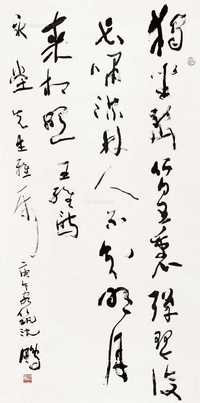 獨坐幽篁裏彈琴復
長嘯深林人不知明月
來相照 王維詩
永堂先生雅屬
庚午 沈鵬